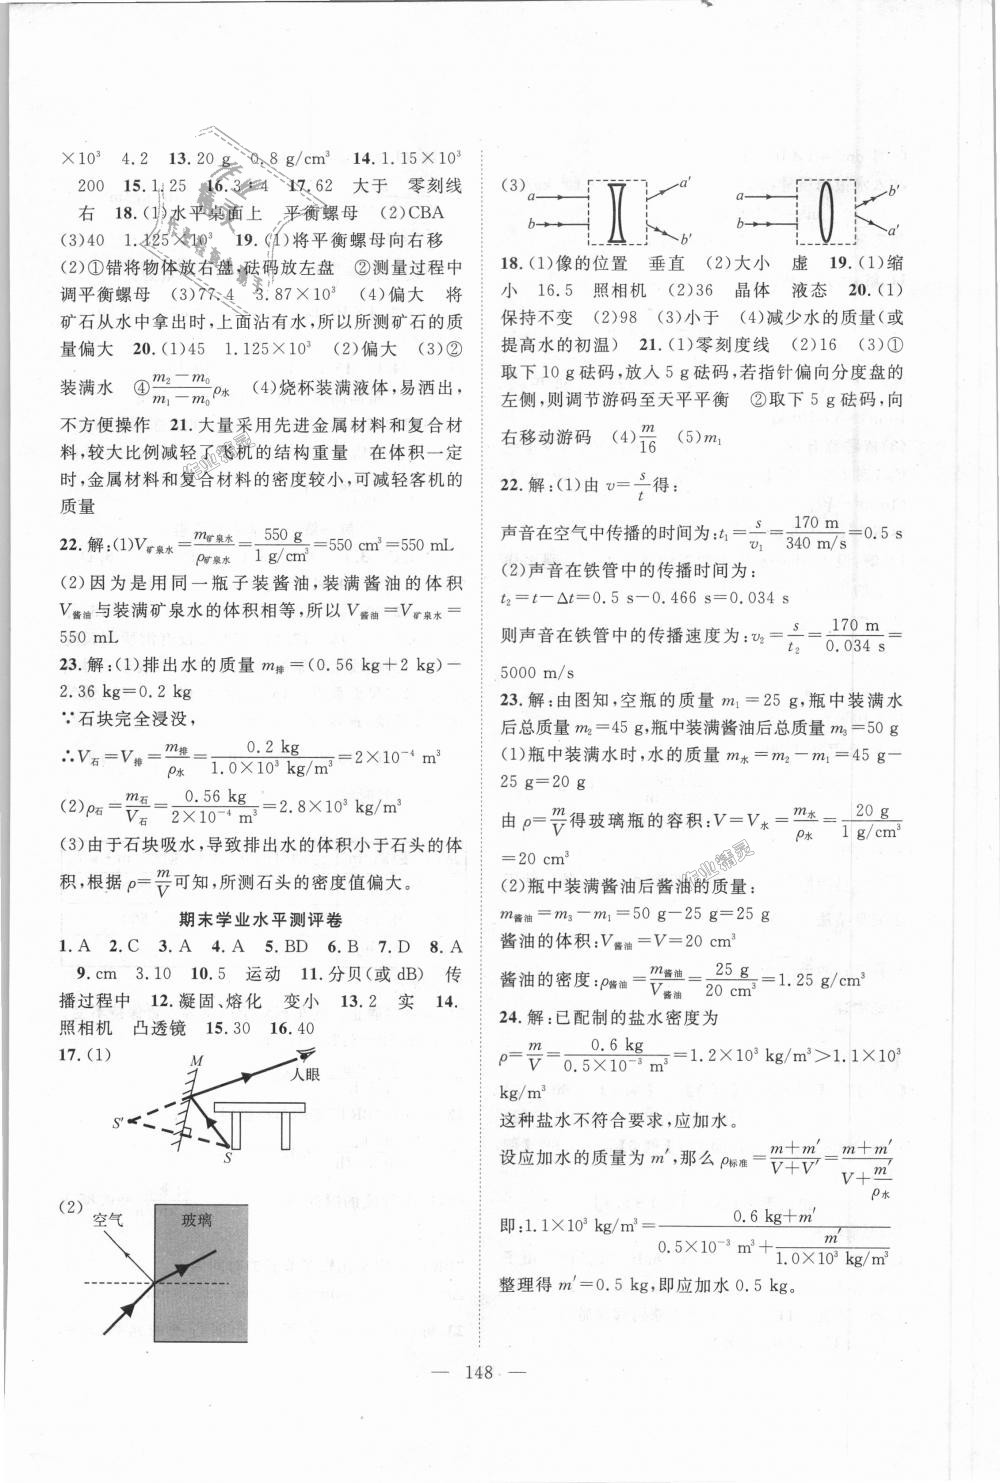 ×10³ 4.2 13.20 g 0.8 g/cm³ 14.1.15×10³
200 15.1.25 16.3∶4 17.62 大于 零刻线
右 18.(1)水平桌面上 平衡螺母 (2)CBA
(3)40 1.125×10³ 19.(1)将平衡螺母向右移
(2)①错将物体放右盘,砝码放左盘 ②测量过程中
调平衡螺母 (3)77.4 3.87×10³ (4)偏大 将
矿石从水中拿出时,上面沾有水,所以所测矿石的质
量偏大 20.(1)45 1.125×10³ (2)偏大 (3)②
装满水 ④(m₂－m₀)/(m₁－m₀)ρ水 (4)烧杯装满液体,易洒出,
不方便操作 21.大量采用先进金属材料和复合材
料,较大比例减轻了飞机的结构重量 在体积一定
时,金属材料和复合材料的密度较小,可减轻客机的
质量
22.解:(1)V矿泉水=m矿泉水/ρ矿泉水=550 g/1 g/cm³=550 cm³=550 mL
(2)因为是用同一瓶子装酱油,装满酱油的体积
V酱油与装满矿泉水的体积相等,所以 V酱油=V矿泉水=
550 mL
23.解:(1)排出水的质量 m排=(0.56 kg+2 kg)－
2.36 kg=0.2 kg
∵石块完全浸没,
∴V石=V排=m排/ρ水=0.2 kg/1.0×10³ kg/m³=2×10⁻⁴ m³
(2)ρ石=m石/V石=0.56 kg/2×10⁻⁴ m³=2.8×10³ kg/m³
(3)由于石块吸水,导致排出水的体积小于石头的体
积,根据 ρ=m/V可知,所测石头的密度值偏大。
期末学业水平测评卷
1.A 2.C 3.A 4.A 5.BD 6.B 7.D 8.A
9.cm 3.10 10.5 运动 11.分贝(或 dB) 传
播过程中 12.凝固、熔化 变小 13.2 实 14.
照相机 凸透镜 15.30 16.40
17.(1)
M
人眼
S′
S
(2)
空气 玻璃
(3)
a a′
b b′
a b′
b a′
18.(1)像的位置 垂直 (2)大小 虚 19.(1)缩
小 16.5 照相机 (2)36 晶体 液态 20.(1)
保持不变 (2)98 (3)小于 (4)减少水的质量(或
提高水的初温) 21.(1)零刻度线 (2)16 (3)①
取下 10 g 砝码,放入 5 g 砝码,若指针偏向分度盘的
左侧,则调节游码至天平平衡 ②取下 5 g 砝码,向
右移动游码 (4)m/16 (5)m₁
22.解:(1)由 v=s/t得:
声音在空气中传播的时间为:t₁=s/v₁=170 m/340 m/s=0.5 s
(2)声音在铁管中的传播时间为:
t₂=t－Δt=0.5 s－0.466 s=0.034 s
则声音在铁管中的传播速度为:v₂=s/t₂=170 m/0.034 s=
5000 m/s
23.解:由图知,空瓶的质量 m₁=25 g,瓶中装满水
后总质量 m₂=45 g,瓶中装满酱油后总质量 m₃=50 g
(1)瓶中装满水时,水的质量 m水=m₂－m₁=45 g－
25 g=20 g
由 ρ=m/V得玻璃瓶的容积:V=V水=m水/ρ水=20 g/1 g/cm³
=20 cm³
(2)瓶中装满酱油后酱油的质量:
m酱油=m₃－m₁=50 g－25 g=25 g
酱油的体积:V酱油=V=20 cm³
酱油的密度:ρ酱油=m酱油/V酱油=25 g/20 cm³=1.25 g/cm³
24.解:已配制的盐水密度为
ρ=m/V=0.6 kg/0.5×10⁻³ m³=1.2×10³ kg/m³>1.1×10³
kg/m³
这种盐水不符合要求,应加水。
设应加水的质量为 m′,那么 ρ标准=(m+m′)/(V+V′)=(m+m′)/(V+m′/ρ水)
即:1.1×10³ kg/m³=(0.6 kg+m′)/(0.5×10⁻³ m³+m′/1.0×10³ kg/m³)
整理得 m′=0.5 kg,即应加水 0.5 kg。
— 148 —
作业精灵
作业精灵